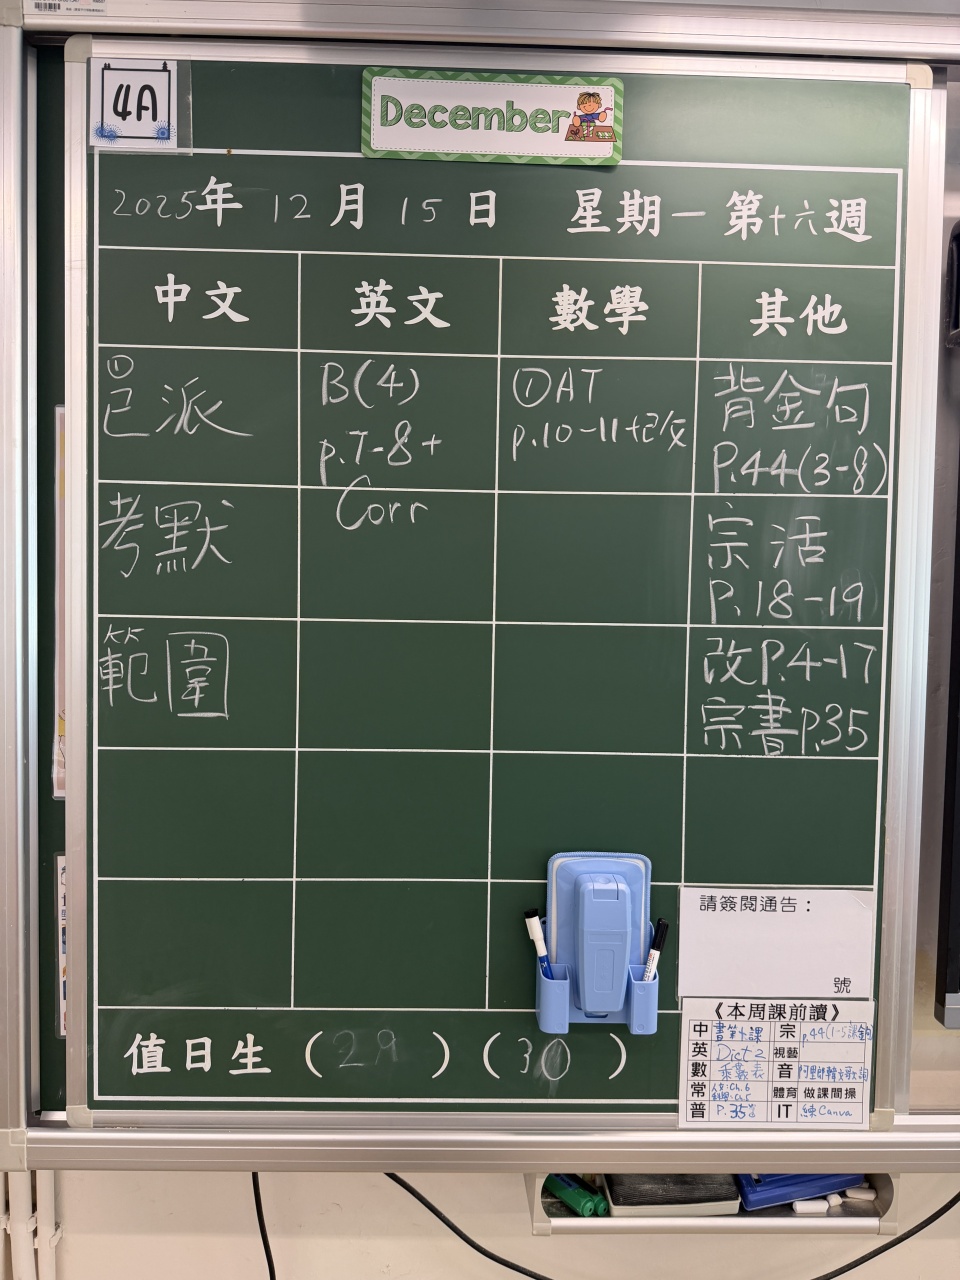 4A
December
2025年 12月 15日 星期一 第十六週
中文 英文 數學 其他
① 已派
考默
範圍
B(4)
p.7-8+
Corr
①AT
p.10-11+已改
背金句
P.44(3-8)
宗活
P.18-19
改P.4-17
宗書P.35
請簽閱通告：
號
值日生 (29) (30)
《本周課前讀》
中 書第十課 宗 p.44(1-5課金句)
英 Dict 2 視藝
數 乘數表 音 阿里郎韓文歌詞
常 人文:Ch.6 科學:Ch.5 體育 做課間操
普 P.35 IT 練Canva